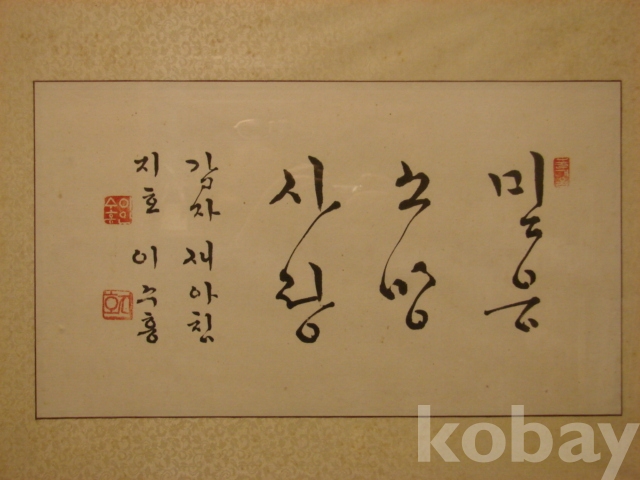 믿음
소망
사랑
갑자 새아침
지호 이수홍
kobay